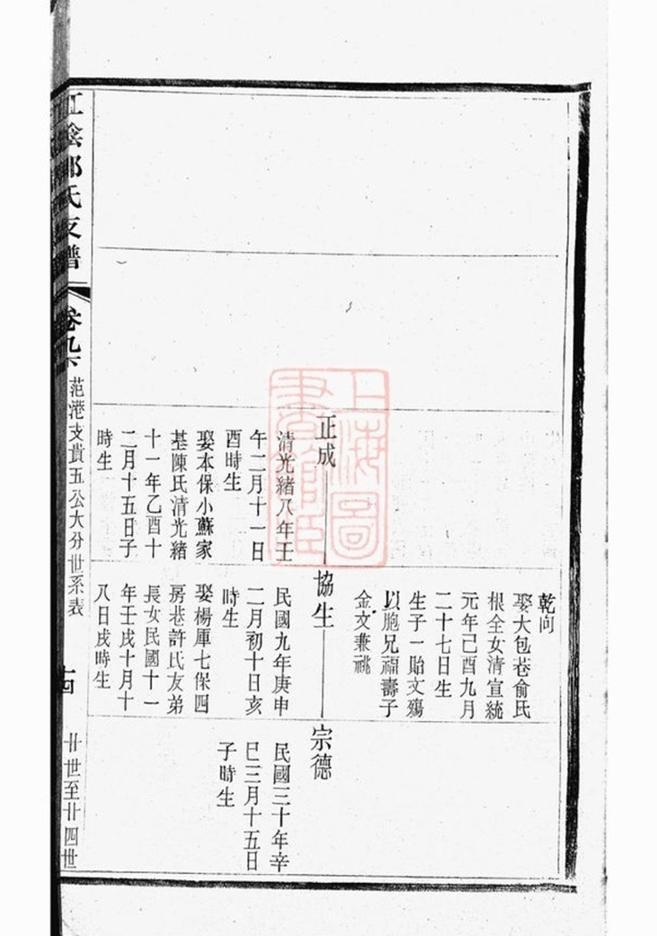 乾向
娶大包巷俞氏
根全女清宣統
元年己酉九月
二十七日生
生子一貽文殤
以胞兄福壽子
金文兼祧
正成
清光緒八年壬
午二月十一日
酉時生
娶本保小蘇家
基陳氏清光緒
十一年乙酉十
二月十五日子
時生
協生
民國九年庚申
二月初十日亥
時生
娶楊厙七保四
房巷許氏友弟
長女民國十一
年壬戌十月十
八日戌時生
宗德
民國三十年辛
巳三月十五日
子時生
江陰
氏支譜
卷九下
范港支貴五公大分世系表
十四
廿世至廿四世
上海圖
書館藏